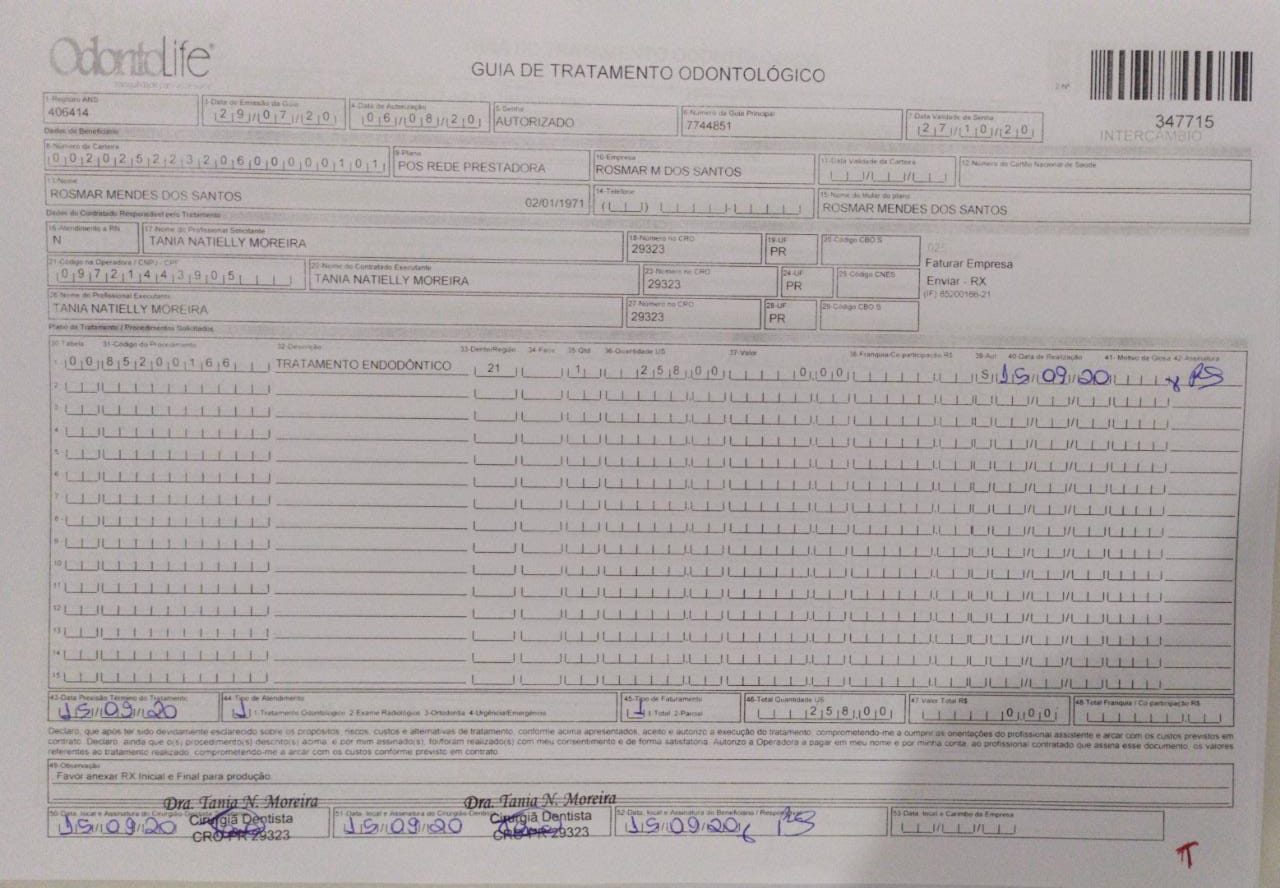 OdontoLife
GUIA DE TRATAMENTO ODONTOLÓGICO
2-Nº
347715
INTERCÂMBIO
1-Registro ANS
406414
3-Data de Emissão da Guia
29/07/20
4-Data de Autorização
06/08/20
5-Senha
AUTORIZADO
6-Número da Guia Principal
7744851
7-Data Validade da Senha
27/10/20
Dados do Beneficiário
8-Número da Carteira
00202522320600000101
9-Plano
POS REDE PRESTADORA
10-Empresa
ROSMAR M DOS SANTOS
11-Data Validade da Carteira
12-Número do Cartão Nacional de Saúde
13-Nome
ROSMAR MENDES DOS SANTOS
02/01/1971
14-Telefone
15-Nome do titular do plano
ROSMAR MENDES DOS SANTOS
Dados do Contratado Responsável pelo Tratamento
16-Atendimento a RN
N
17-Nome do Profissional Solicitante
TANIA NATIELLY MOREIRA
18-Número no CRO
29323
19-UF
PR
20-Código CBO S
Faturar Empresa
Enviar - RX
(IF) 85200166-21
21-Código na Operadora / CNPJ - CPF
09721443905
22-Nome do Contratado Executante
TANIA NATIELLY MOREIRA
23-Número no CRO
29323
24-UF
PR
25-Código CNES
26-Nome do Profissional Executante
TANIA NATIELLY MOREIRA
27-Número no CRO
29323
28-UF
PR
29-Código CBO S
Plano de Tratamento / Procedimentos Solicitados
30-Tabela 31-Código do Procedimento 32-Descrição 33-Dente/Região 34-Face 35-Qtd 36-Quantidade US 37-Valor 38-Franquia/Co-participação R$ 39-Aut 40-Data de Realização 41- Motivo da Glosa 42-Assinatura
1- 00 85200166 TRATAMENTO ENDODÔNTICO 21 1 258 00 0 00 S 15/09/20 x RS
2-
3-
4-
5-
6-
7-
8-
9-
10
11
12
13
14
15
43-Data Previsão Término do Tratamento
15/09/20
44-Tipo de Atendimento
1 1-Tratamento Odontológico 2-Exame Radiológico 3-Ortodontia 4-Urgência/Emergência
45-Tipo de Faturamento
1 1 Total 2-Parcial
46-Total Quantidade US
258 00
47 Valor Total R$
0 00
48-Total Franquia / Co participação R$
Declaro, que após ter sido devidamente esclarecido sobre os propósitos, riscos, custos e alternativas de tratamento, conforme acima apresentados, aceito e autorizo a execução do tratamento, comprometendo-me a cumprir as orientações do profissional assistente e arcar com os custos previstos em
contrato. Declaro, ainda que o(s) procedimento(s) descrito(s) acima, e por mim assinado(s), foi/foram realizado(s) com meu consentimento e de forma satisfatória. Autorizo a Operadora a pagar em meu nome e por minha conta, ao profissional contratado que assina esse documento, os valores
referentes ao tratamento realizado, comprometendo-me a arcar com os custos conforme previsto em contrato.
49-Observação
Favor anexar RX Inicial e Final para produção.
Dra. Tania N. Moreira
Cirurgiã Dentista
CRO PR 29323
Dra. Tania N. Moreira
Cirurgiã Dentista
CRO PR 29323
50-Data, local e Assinatura do Cirurgião-Dentista
15/09/20
51-Data, local e Assinatura do Cirurgião-Dentista
15/09/20
52-Data, local e Assinatura do Beneficiário / Responsável
15/09/20 x RS
53-Data, local e Carimbo da Empresa